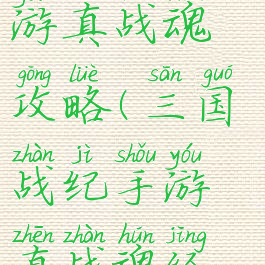 游真战魂
gōng lüè sān guó
攻略(三国
zhàn jì shǒu yóu
战纪手游
zhēn zhàn hún jīng
真战魂经